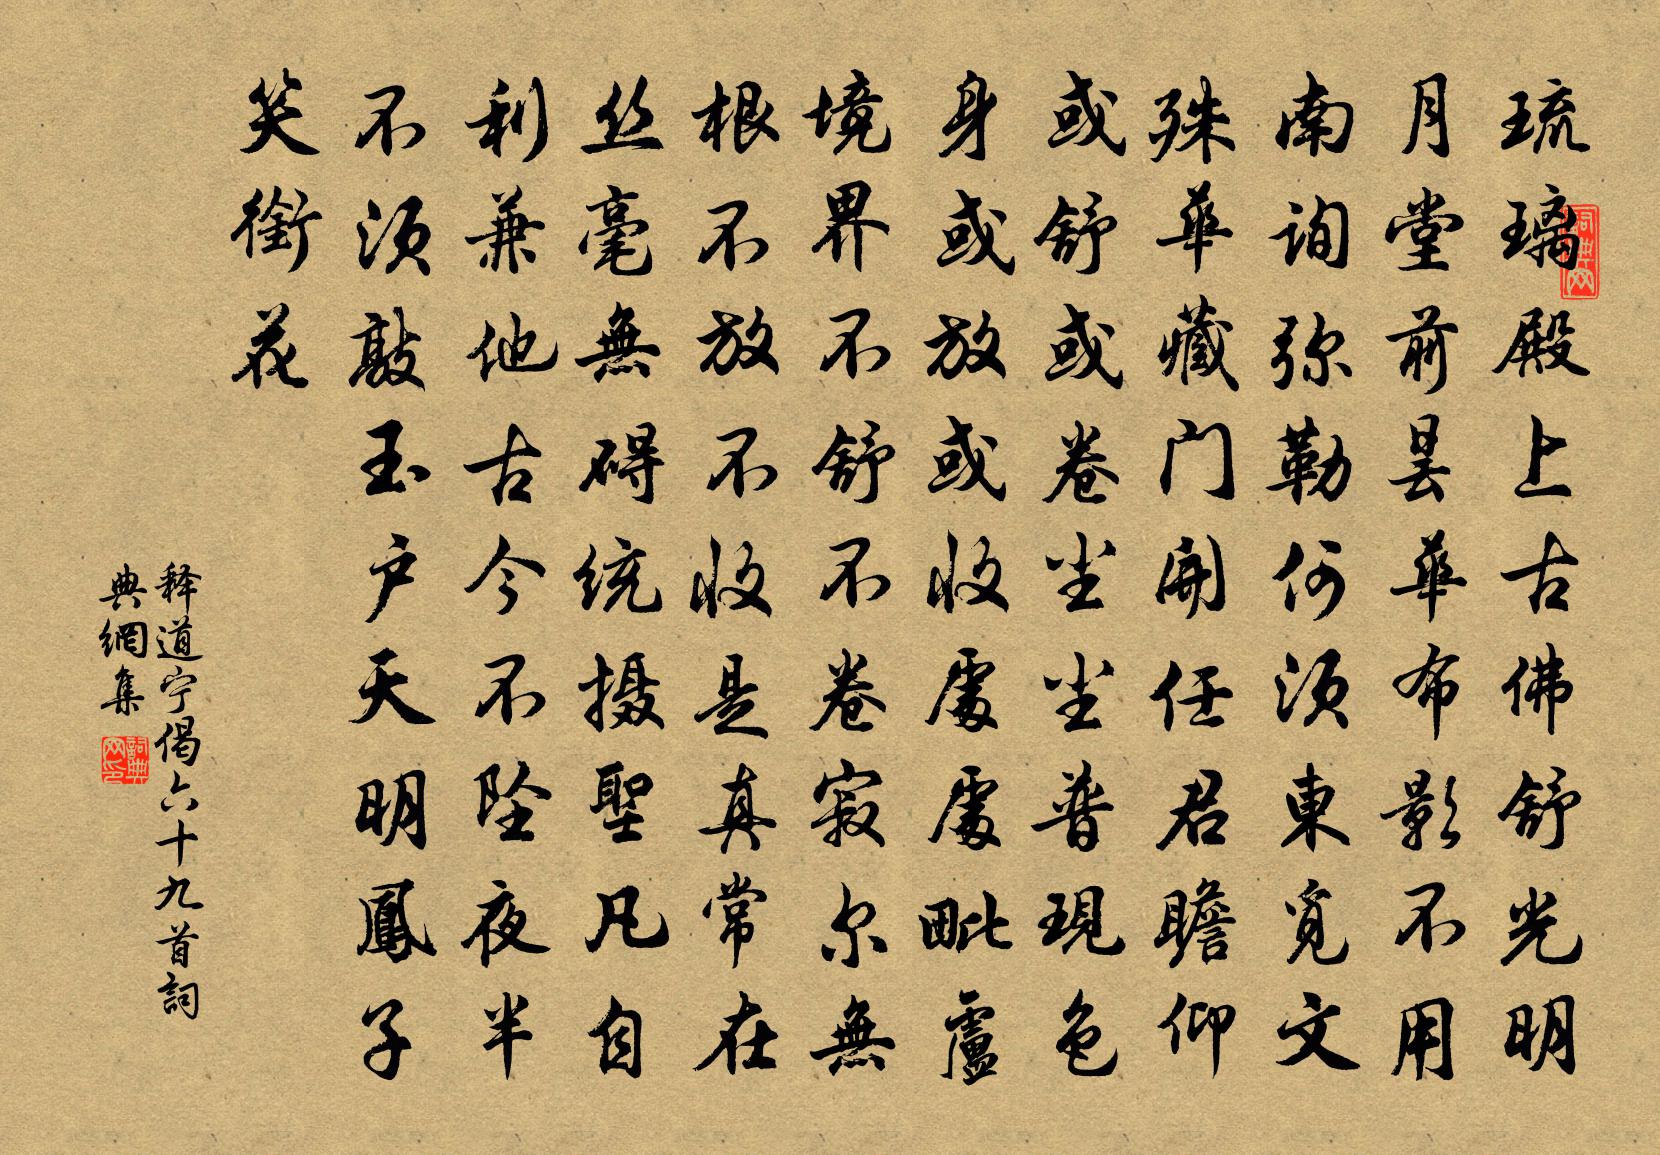 琉璃殿上古佛舒光明
月堂前昙華布影不用
南询弥勒何须東覓文
殊華藏门開任君瞻仰
或舒或卷尘尘普現色
身或放或收處處毗盧
境界不舒不卷寂尔無
根不放不收是真常在
丝毫無碍统摄聖凡自
利兼他古今不坠夜半
不须敲玉户天明鳳子
笑銜花
释道宁偈六十九首詞
典網集
词典网
詞典网印